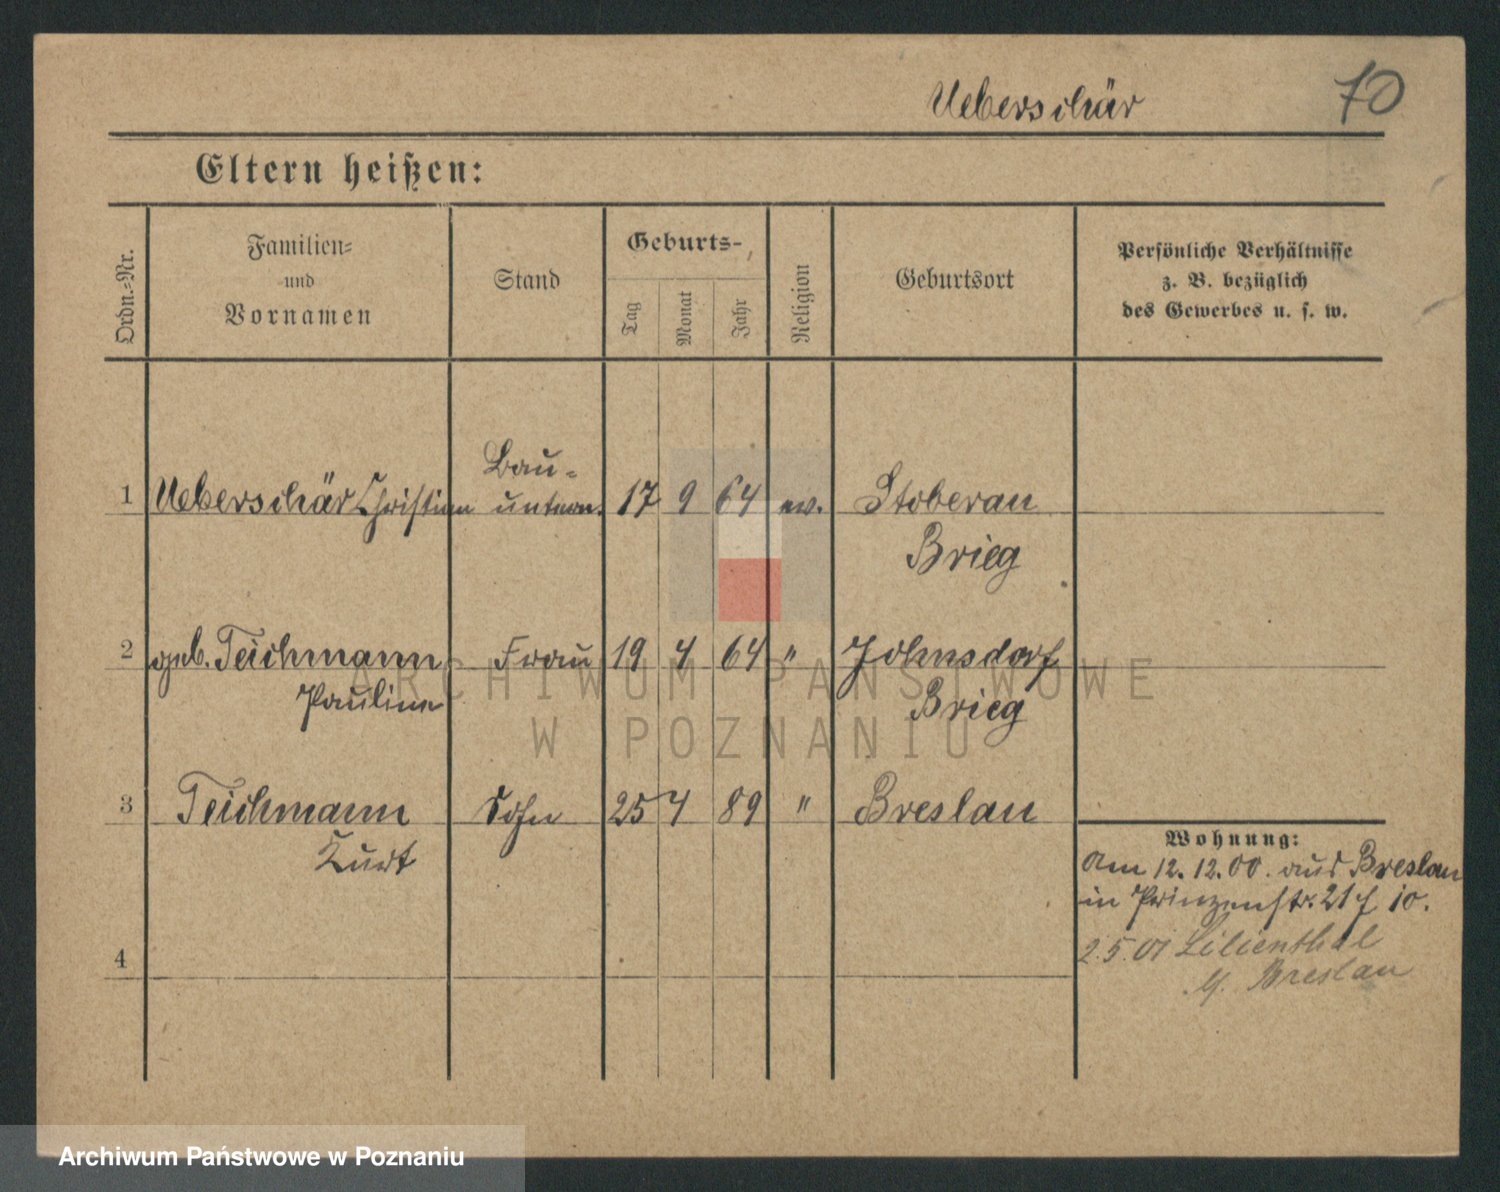 Ueberschär 70
Eltern heißen:
Ordn.=Nr.
Familien=
und
Vornamen
Stand
Geburts=
Tag
Monat
Jahr
Religion
Geburtsort
Persönliche Verhältnisse
z. B. bezüglich
des Gewerbes u. s. w.
Bau-
1 Ueberschär Christian untern. 17 9 64 ev. Stoberau
Brieg
2 geb. Teichmann Frau 19 4 64 " Johnsdorf
Pauline Brieg
3 Teichmann Sohn 25 4 89 " Breslau
Kurt
4
Wohnung:
Am 12.12.00. aus Breslau
in Prinzenstr. 21 f 10.
2.5.01 Lilienthal
Breslau
ARCHIWUM PAŃSTWOWE
W POZNANIU
Archiwum Państwowe w Poznaniu